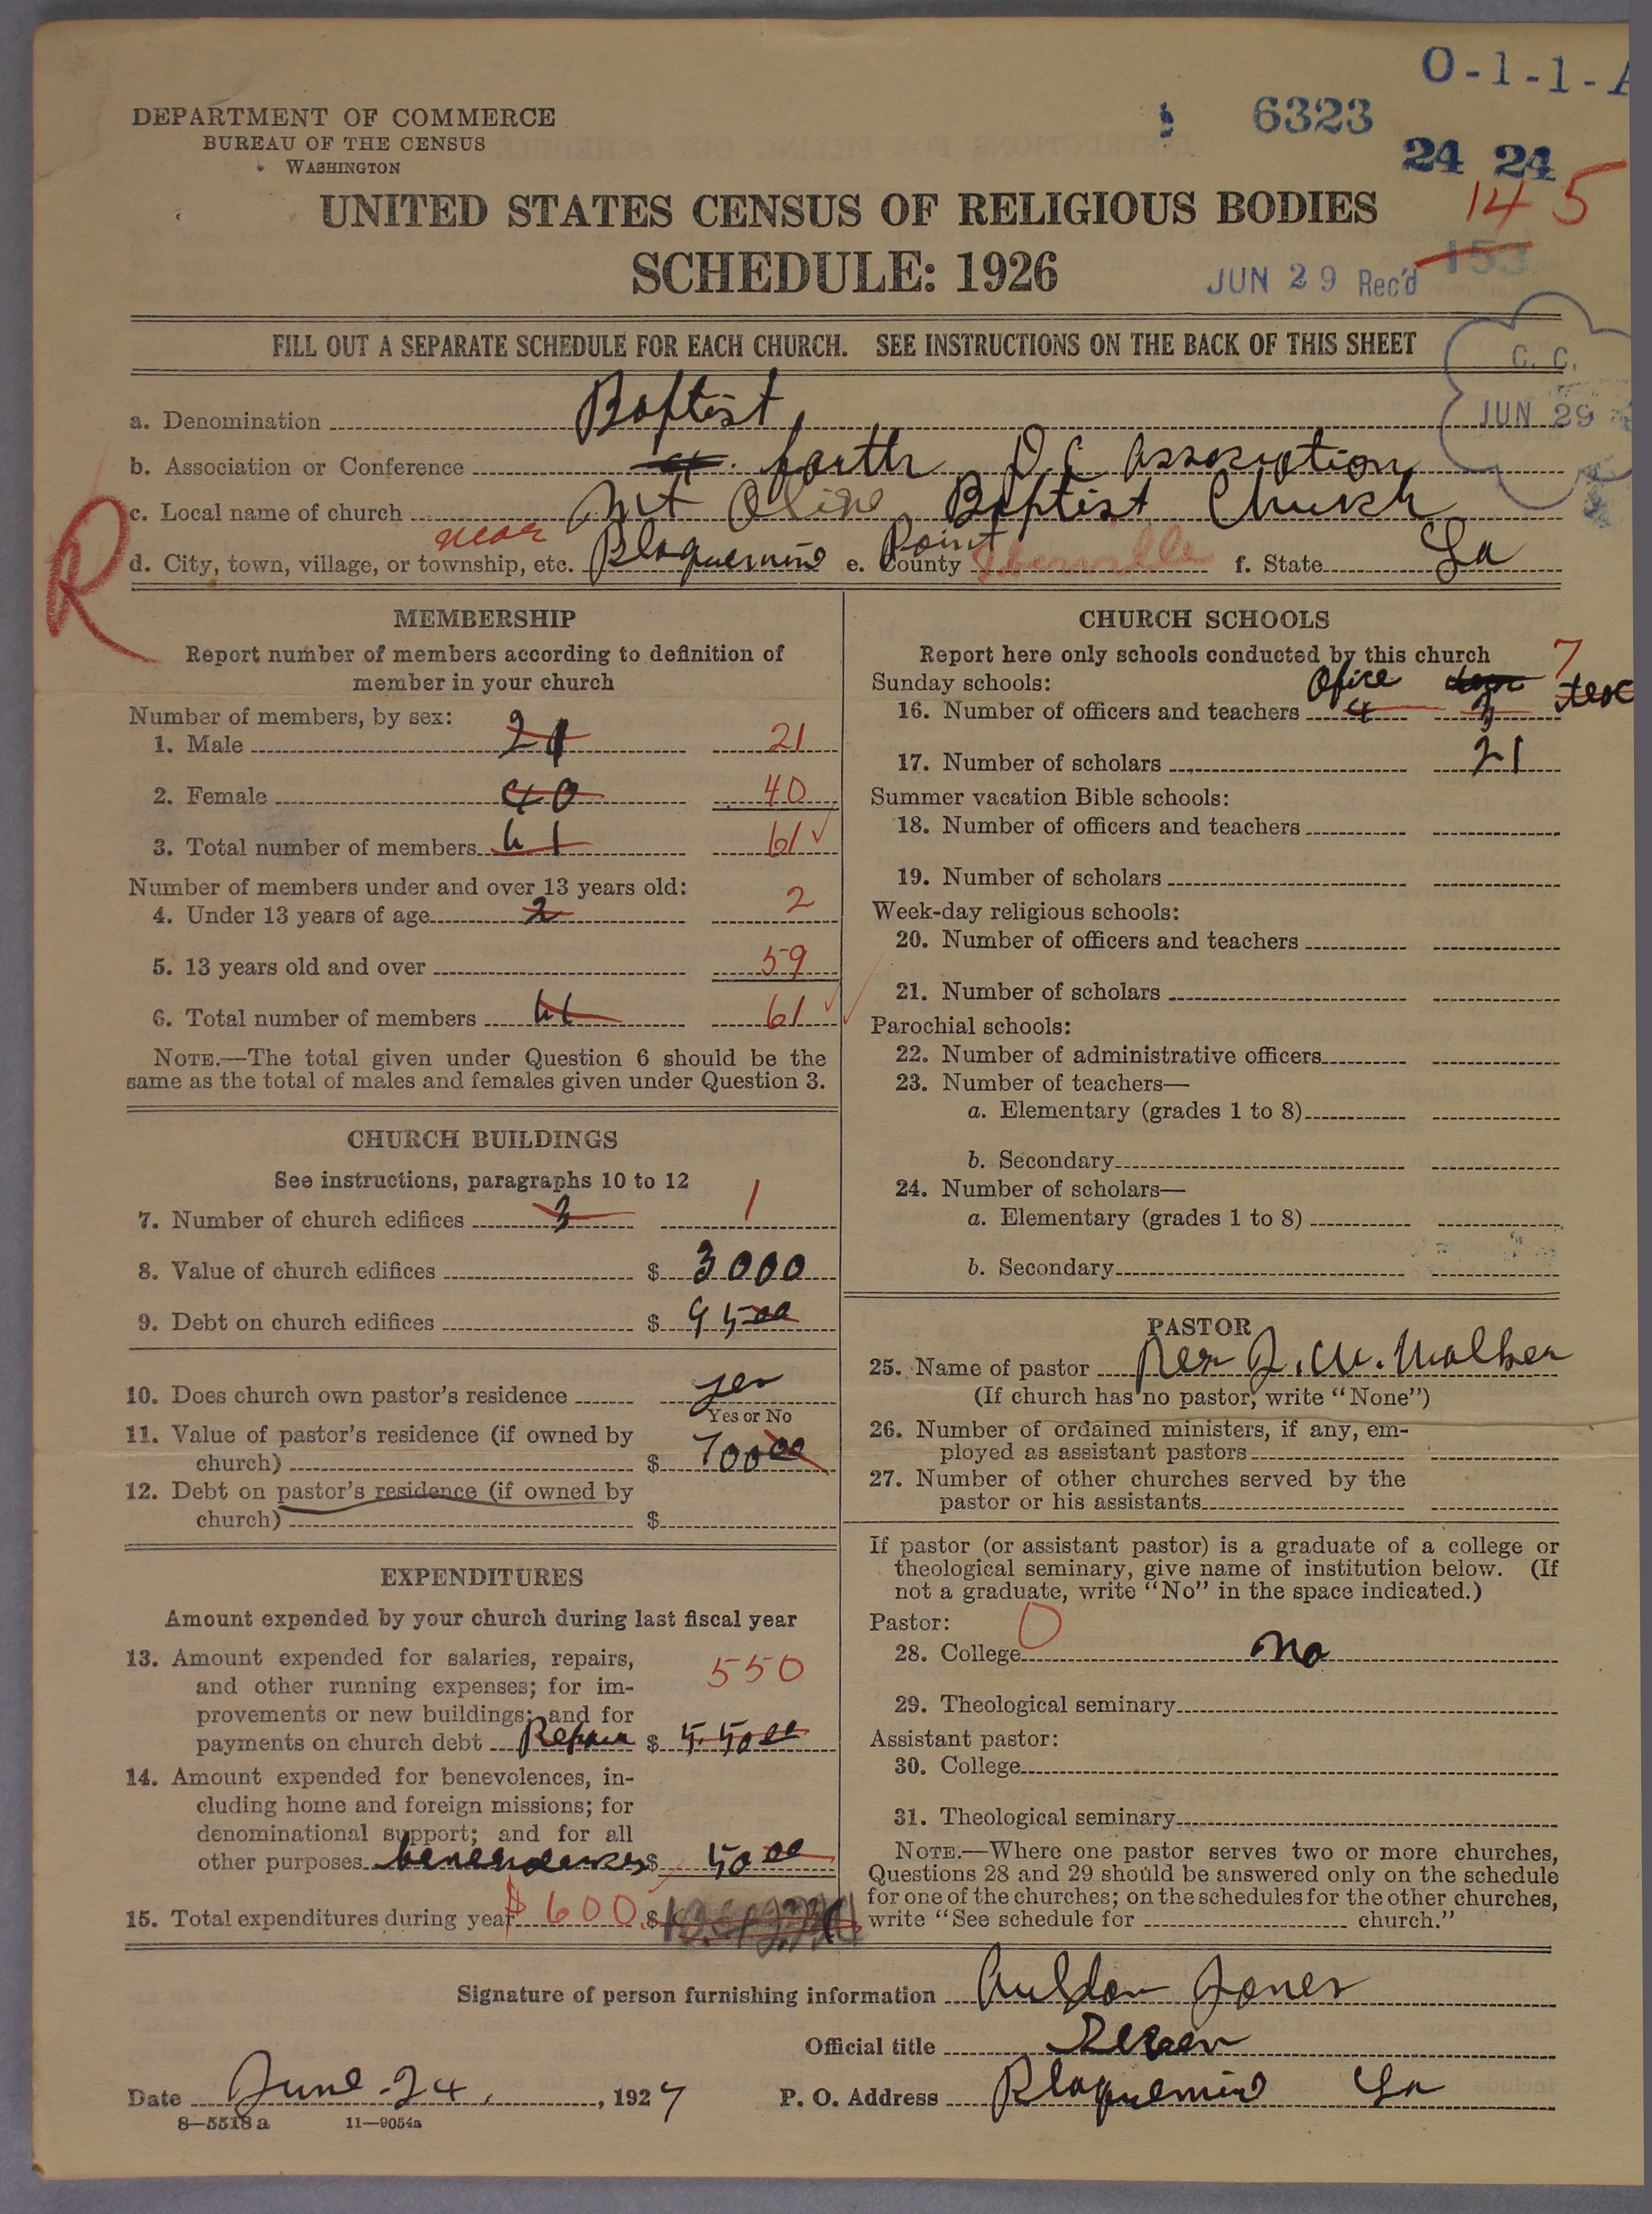 O-1-1-A
DEPARTMENT OF COMMERCE
BUREAU OF THE CENSUS
WASHINGTON
6323
24 24
14 5
153
UNITED STATES CENSUS OF RELIGIOUS BODIES
SCHEDULE: 1926
JUN 29 Rec'd
FILL OUT A SEPARATE SCHEDULE FOR EACH CHURCH. SEE INSTRUCTIONS ON THE BACK OF THIS SHEET
C. C.
JUN 29
a. Denomination Baptist
b. Association or Conference fourth D C Association
c. Local name of church Mt Olive Baptist Church
R
near Point
d. City, town, village, or township, etc. Plaquemine e. County Iberville f. State La
MEMBERSHIP
Report number of members according to definition of
member in your church
Number of members, by sex:
1. Male 21 21
2. Female 40 40
3. Total number of members 61 61
Number of members under and over 13 years old:
4. Under 13 years of age 2 2
5. 13 years old and over 59
6. Total number of members 61 61
NOTE.—The total given under Question 6 should be the
same as the total of males and females given under Question 3.
CHURCH BUILDINGS
See instructions, paragraphs 10 to 12
7. Number of church edifices 3 1
8. Value of church edifices $ 3000
9. Debt on church edifices $ 95 00
10. Does church own pastor's residence yes
Yes or No
11. Value of pastor's residence (if owned by
church) $ 700 00
12. Debt on pastor's residence (if owned by
church) $
EXPENDITURES
Amount expended by your church during last fiscal year
13. Amount expended for salaries, repairs,
and other running expenses; for im-
provements or new buildings; and for
550
payments on church debt Repair $ 550 00
14. Amount expended for benevolences, in-
cluding home and foreign missions; for
denominational support; and for all
other purposes benevolences $ 50 00
15. Total expenditures during year $ 600 $
CHURCH SCHOOLS
Report here only schools conducted by this church
7
Sunday schools:
16. Number of officers and teachers 4 3
17. Number of scholars 21
Summer vacation Bible schools:
18. Number of officers and teachers
19. Number of scholars
Week-day religious schools:
20. Number of officers and teachers
21. Number of scholars
Parochial schools:
22. Number of administrative officers
23. Number of teachers—
a. Elementary (grades 1 to 8)
b. Secondary
24. Number of scholars—
a. Elementary (grades 1 to 8)
b. Secondary
PASTOR
25. Name of pastor Rev J. W. Walker
(If church has no pastor, write "None")
26. Number of ordained ministers, if any, em-
ployed as assistant pastors
27. Number of other churches served by the
pastor or his assistants
If pastor (or assistant pastor) is a graduate of a college or
theological seminary, give name of institution below. (If
not a graduate, write "No" in the space indicated.)
Pastor: 0
28. College No
29. Theological seminary
Assistant pastor:
30. College
31. Theological seminary
NOTE.—Where one pastor serves two or more churches,
Questions 28 and 29 should be answered only on the schedule
for one of the churches; on the schedules for the other churches,
write "See schedule for church."
Signature of person furnishing information Jones
Official title
Date June 24, 1927 P. O. Address Plaquemine La
8—5518 a 11—9054a